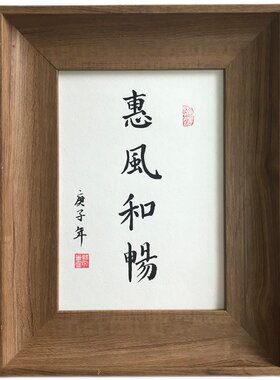 惠風和暢
庚子年